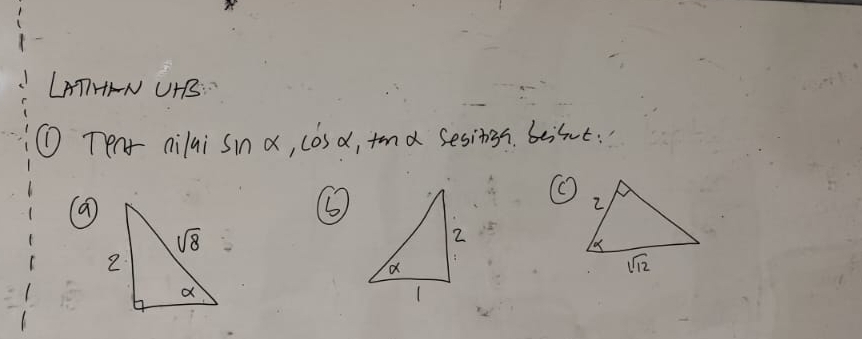 LATIHAN UHB
① Tent nilai sin α, cos α, tan α segitiga berikut:
ⓐ
2
√8
α
ⓑ
α
2
1
ⓒ
2
α
√12